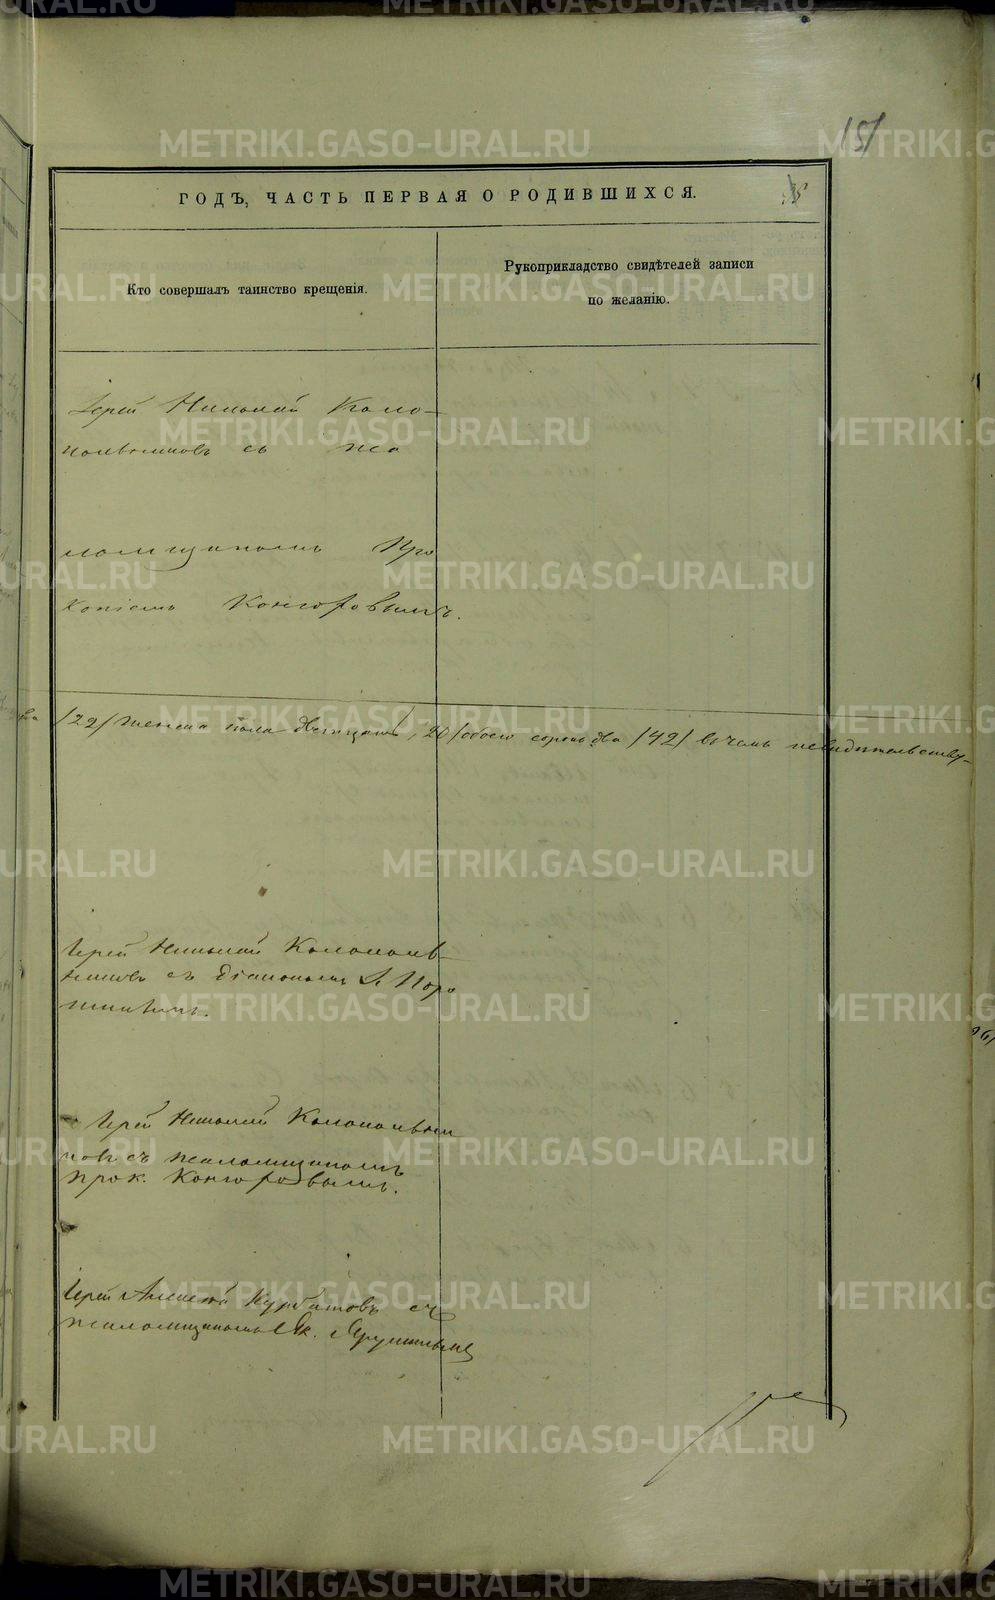 151
ГОДЪ, ЧАСТЬ ПЕРВАЯ О РОДИВШИХСЯ.
Кто совершалъ таинство крещенія.
Рукоприкладство свидѣтелей записи
по желанію.
Іерей Николай Коло-
кольниковъ съ пса
ломщикомъ Про
копіемъ Конюховымъ.
/22/ женска пола двадцать /20/ обоего сорокъ два /42/ въ чемъ и свидѣтельству-
Іерей Николай Колокольн-
никовъ съ діакономъ
Іерей Николай Колокольни
ковъ съ псаломщикомъ
Прок. Конюховымъ.
Іерей Алексей Курбатовъ съ
псаломщикомъ
METRIKI.GASO-URAL.RU